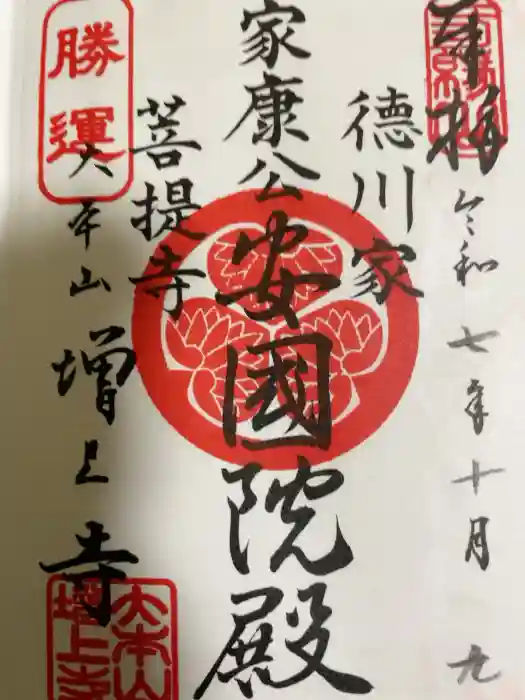 奉拝
令和七年十月九
徳川家
家康公
安國院殿
菩提寺
勝運
大本山
増上寺
大本山
増上寺